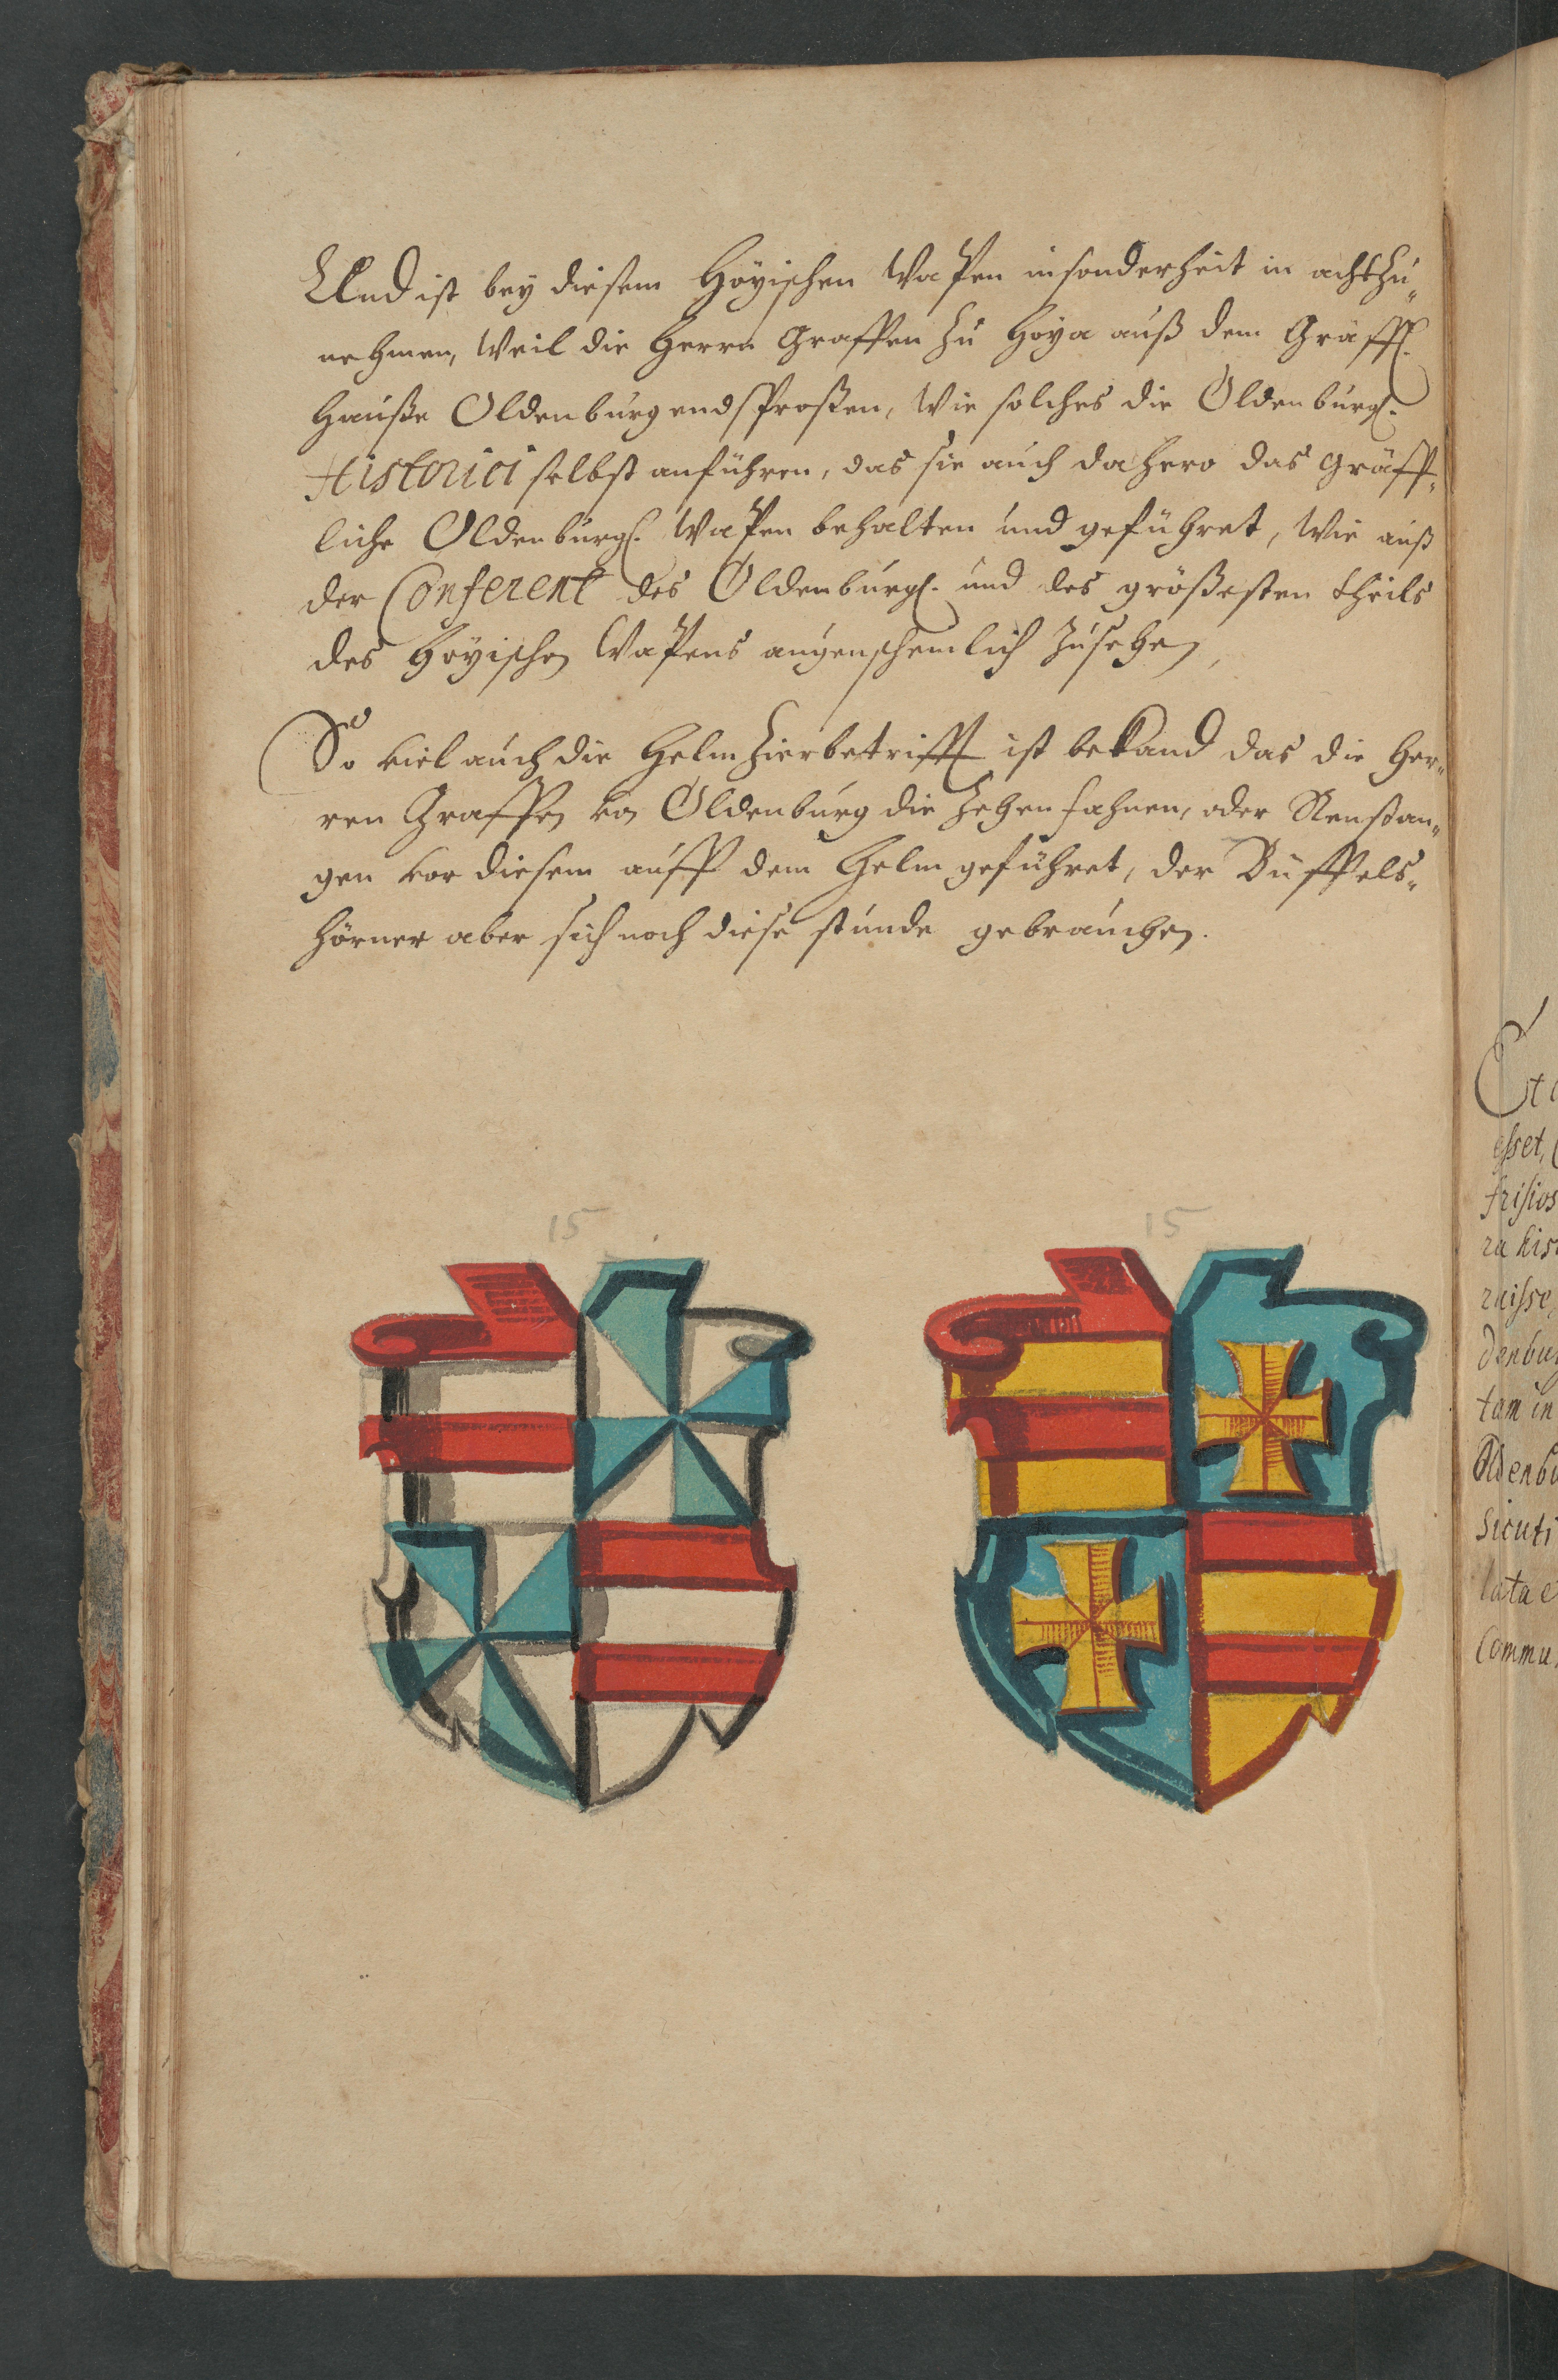 Und ist bey diesem Hoÿischen Wapen insonderheit in acht zu„
nehmen, Weil die Herrn Graffen zu Hoya auß dem Gräffl.
Hauße Oldenburg endsproßen, Wie solches die Oldenburgl.
Historici selbst anführen, das sie auch dahero das Gräff„
liche Oldenburgl. Wapen behalten und geführet, Wie auß
der Conferent des Oldenburgl. und des größesten theils
des Hoÿischen Wapens augenscheinlich zusehen,
So viel auch die Helmzier betrifft ist bekand das die Her„
ren Graffen von Oldenburg die Zehen fahnen, oder Renstan„
gen vor diesem auff dem Helm geführet, der Büffels„
hörner aber sich noch diese stunde gebrauchen.
15 15
Et
esset,
frisios
ra his
raisse,
denbu
tam in
Oldenbu
Sicuti
lata e
Commu